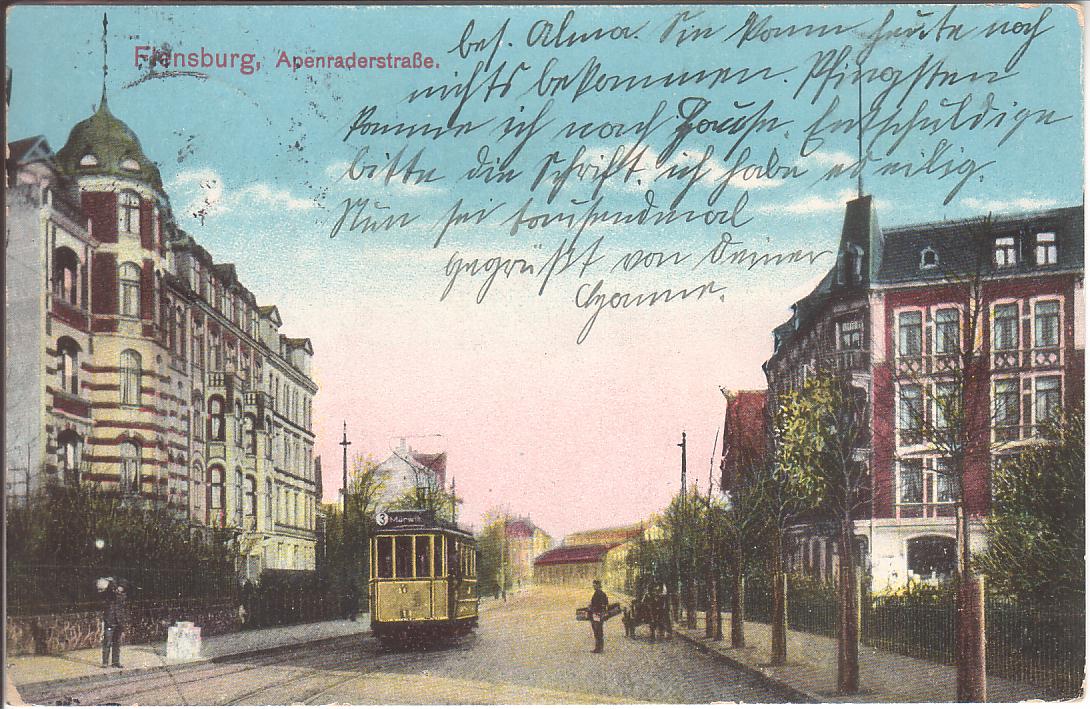 Flensburg, Apenraderstraße.
bes. Alma. Sie kann heute noch
nichts bekommen. Pfingsten
komme ich nach Hause. Entschuldige
bitte die Schrift, ich habe es eilig.
Nun sei tausendmal
gegrüßt von Deiner
3 Mürwik